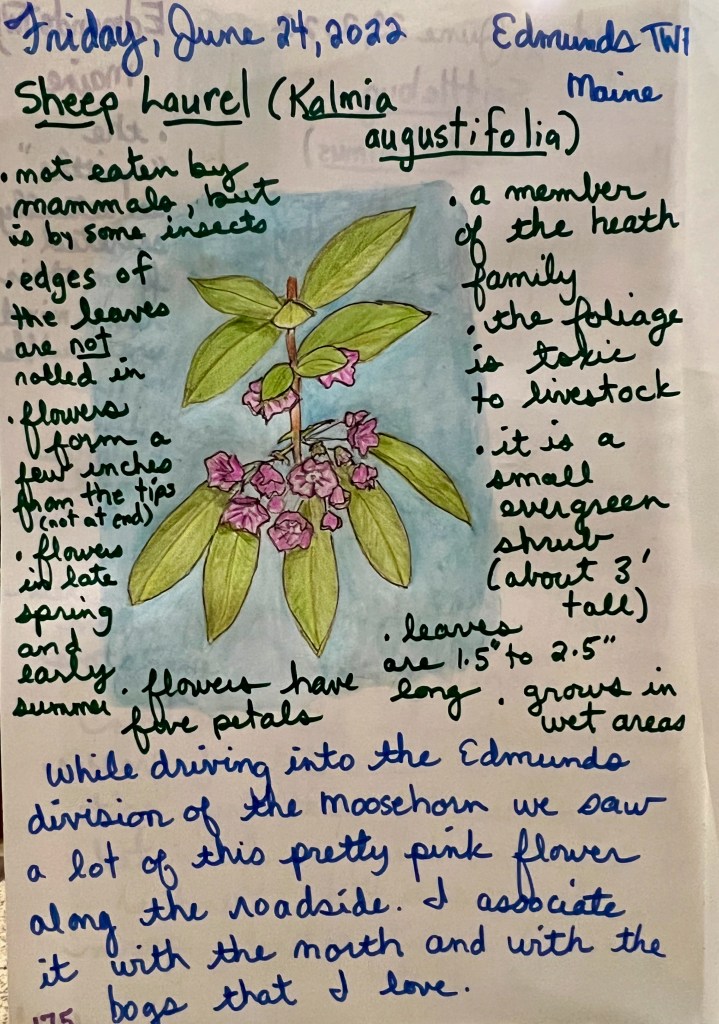 Friday, June 24, 2022
Edmunds TWP
Maine
Sheep Laurel (Kalmia
augustifolia)
• not eaten by
mammals, but
is by some insects
• edges of
the leaves
are not
rolled in
• flowers
form a
few inches
from the tips
(not at end)
• flowers
in late
spring
and
early
summer
• flowers have
five petals
• a member
of the heath
family
• the foliage
is toxic
to livestock
• it is a
small
evergreen
shrub
(about 3'
tall)
• leaves
are 1.5" to 2.5"
long
• grows in
wet areas
While driving into the Edmunds
division of the Moosehorn we saw
a lot of this pretty pink flower
along the roadside. I associate
it with the north and with the
bogs that I love.
175